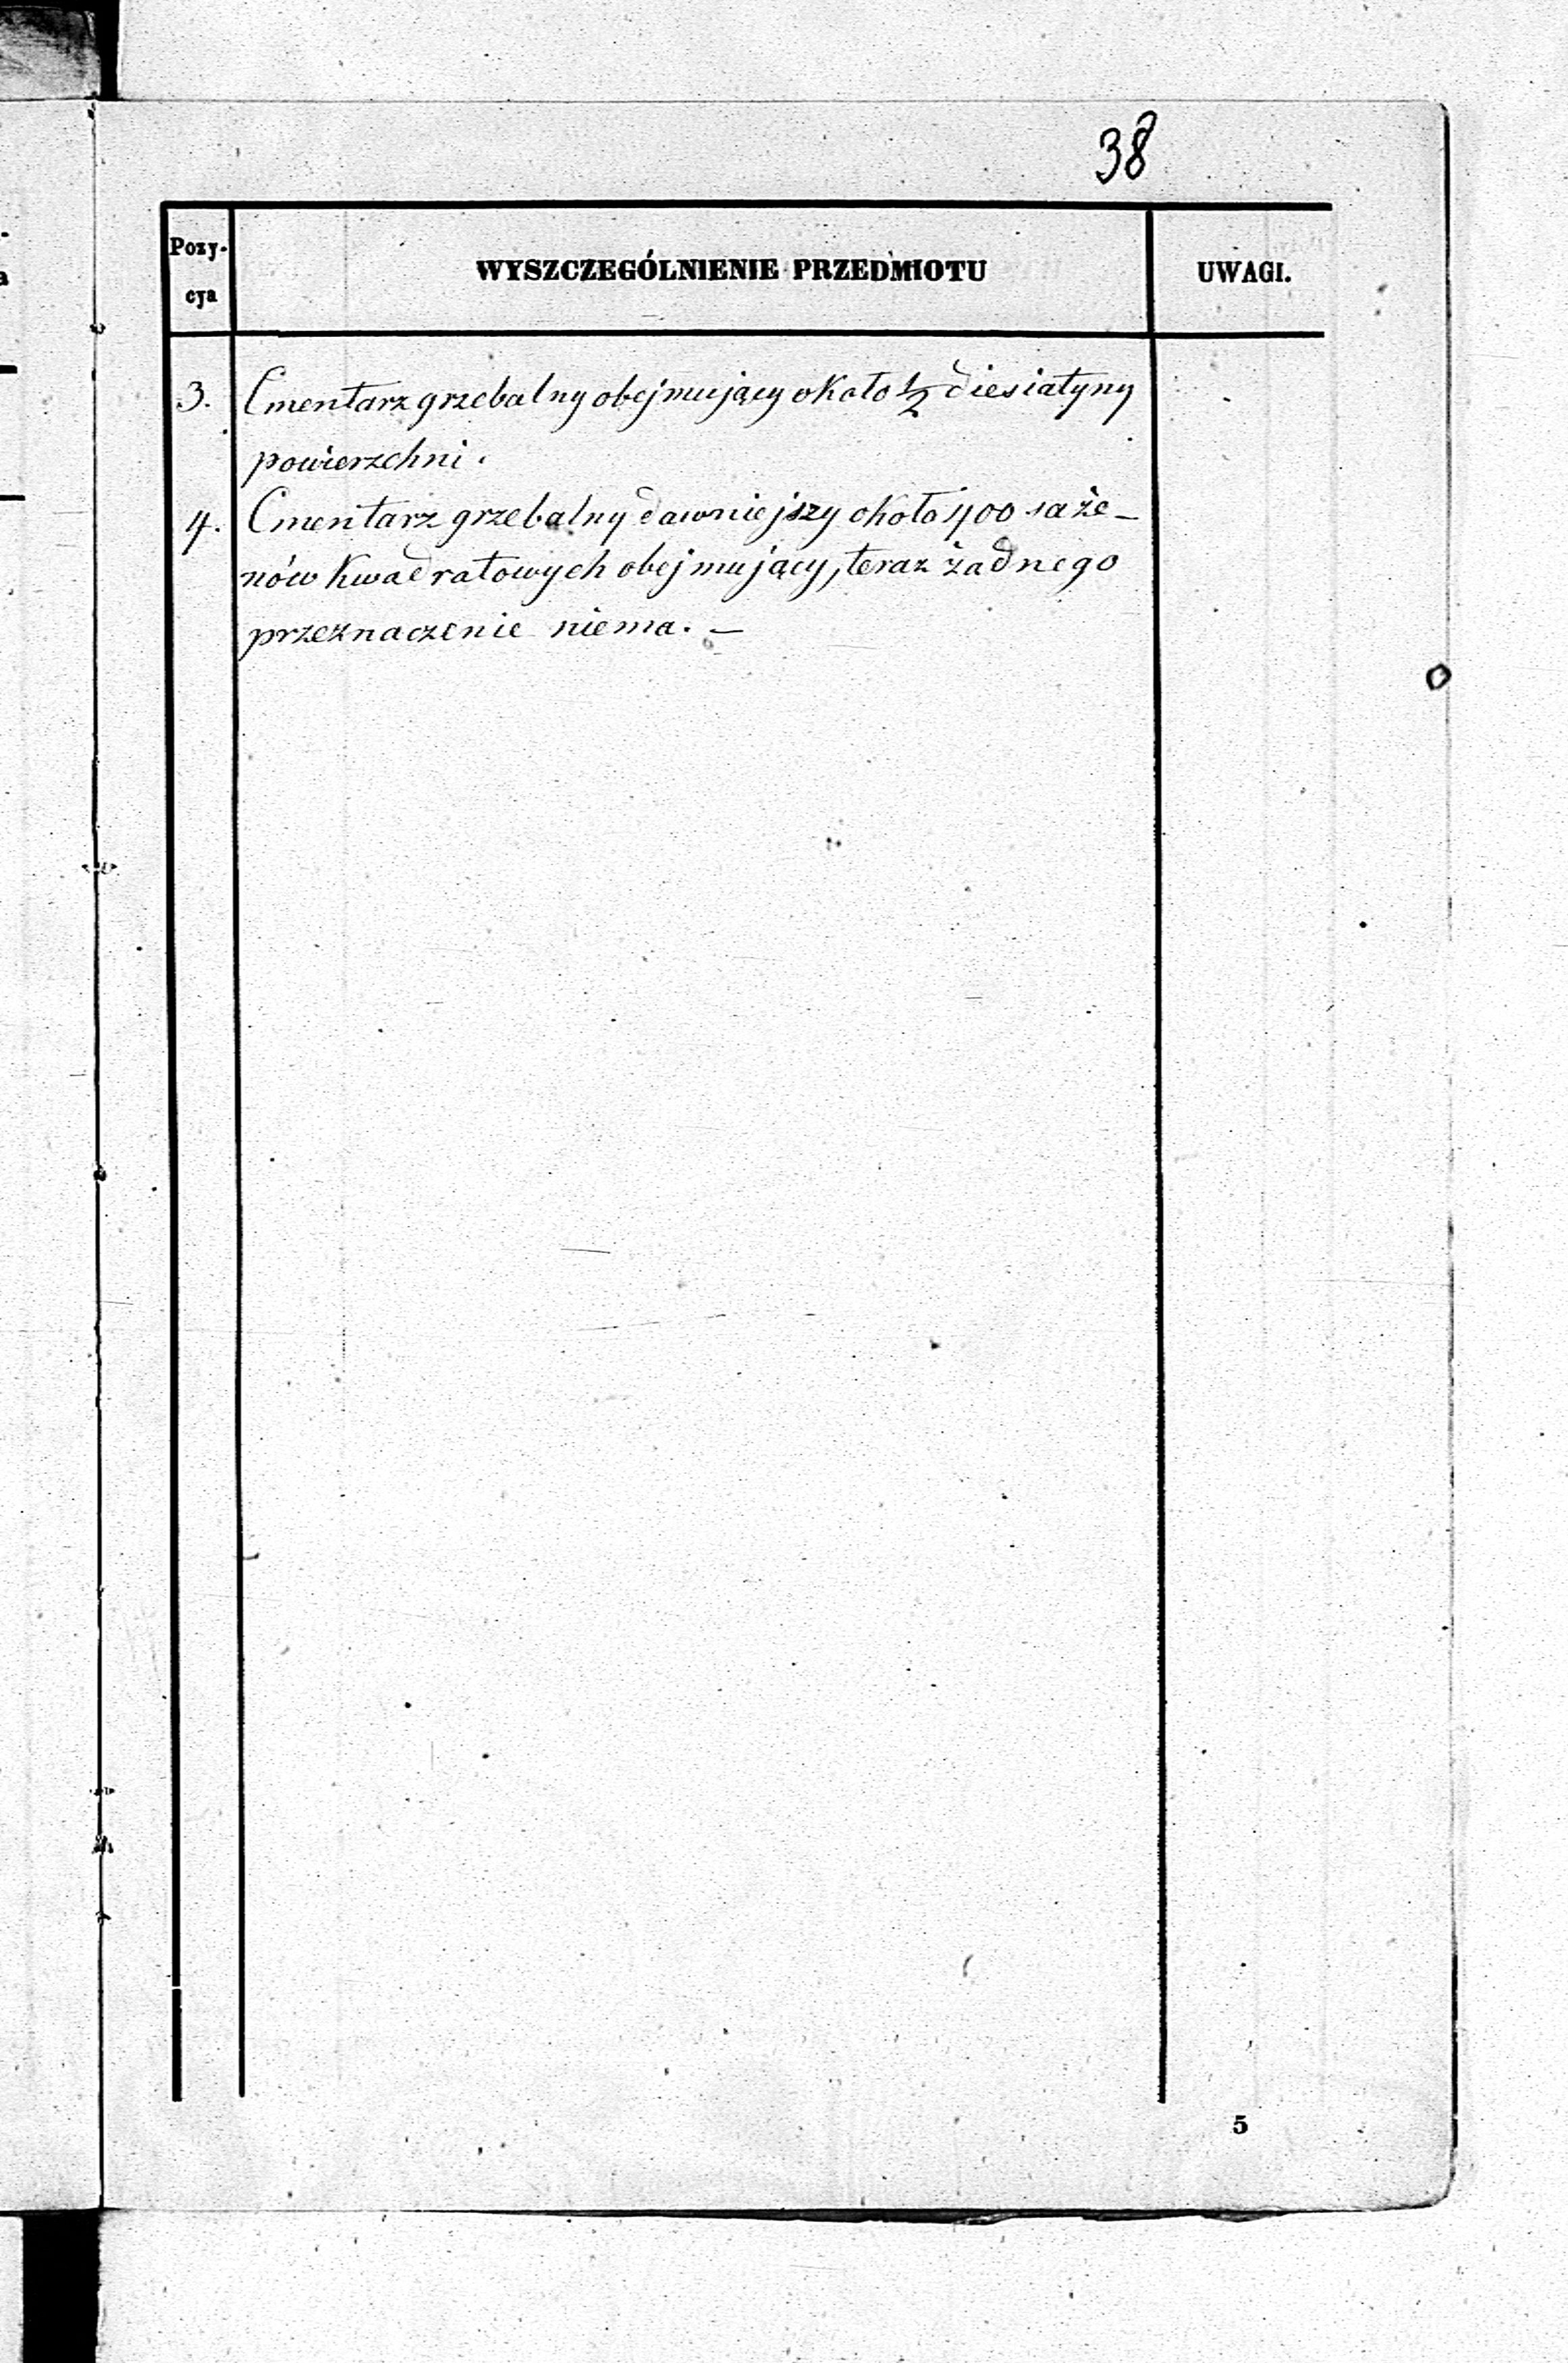 38
Pozy-
cya
WYSZCZEGÓLNIENIE PRZEDMIOTU
UWAGI.
3. Cmentarz grzebalny obejmujący około 1/2 diesiatyny
powierzchni.
4. Cmentarz grzebalny dawniejszy około 400 saże-
nów kwadratowych obejmujący, teraz żadnego
przeznaczenie niema. —
5